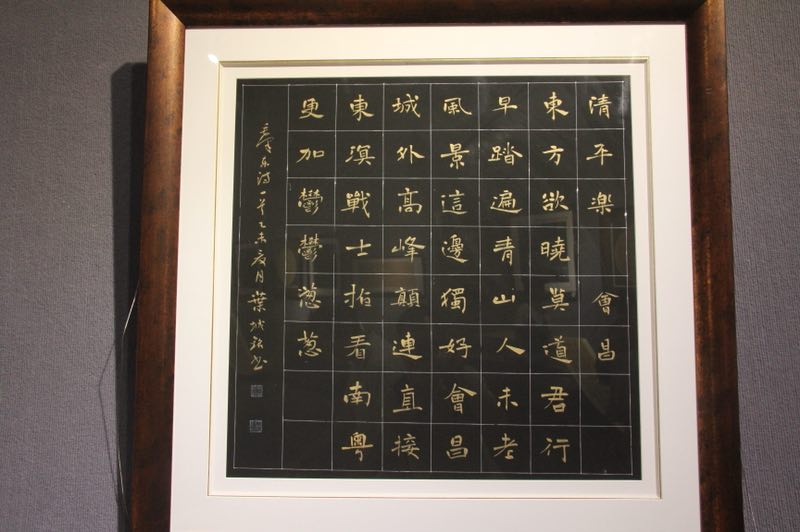 清平楽 會昌
東方欲曉莫道君行
早踏遍青山人未老
風景這邊獨好會昌
城外高峰顛連直接
東溟戰士指看南粤
更加鬱鬱蔥蔥
毛澤东詩一首乙未夏月葉